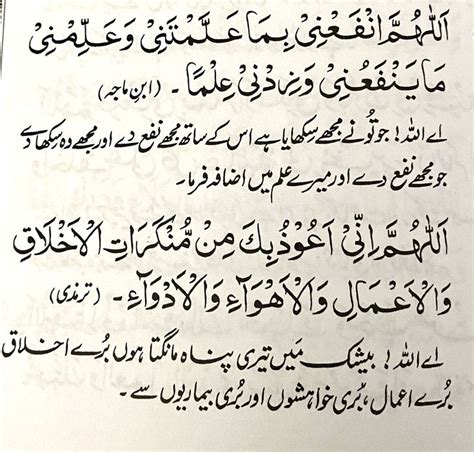 اَللّٰهُمَّ انْفَعْنِىْ بِمَا عَلَّمْتَنِىْ وَعَلِّمْنِىْ
مَا يَنْفَعُنِىْ وَزِدْنِىْ عِلْمًا ۔ (ابنِ ماجہ)
اے اللہ! جو تُو نے مجھے سکھایا ہے اس کے ساتھ مجھے نفع دے اور مجھے وہ سکھا دے
جو مجھے نفع دے اور میرے علم میں اضافہ فرما۔
اَللّٰهُمَّ اِنِّىْ اَعُوْذُ بِكَ مِنْ مُّنْكَرَاتِ الْاَخْلَاقِ
وَالْاَعْمَالِ وَالْاَهْوَآءِ وَالْاَدْوَآءِ ۔ (ترمذی)
اے اللہ! بیشک مَیں تیری پناہ مانگتا ہوں بُرے اخلاق
بُرے اعمال، بُری خواہشوں اور بُری بیماریوں سے ۔